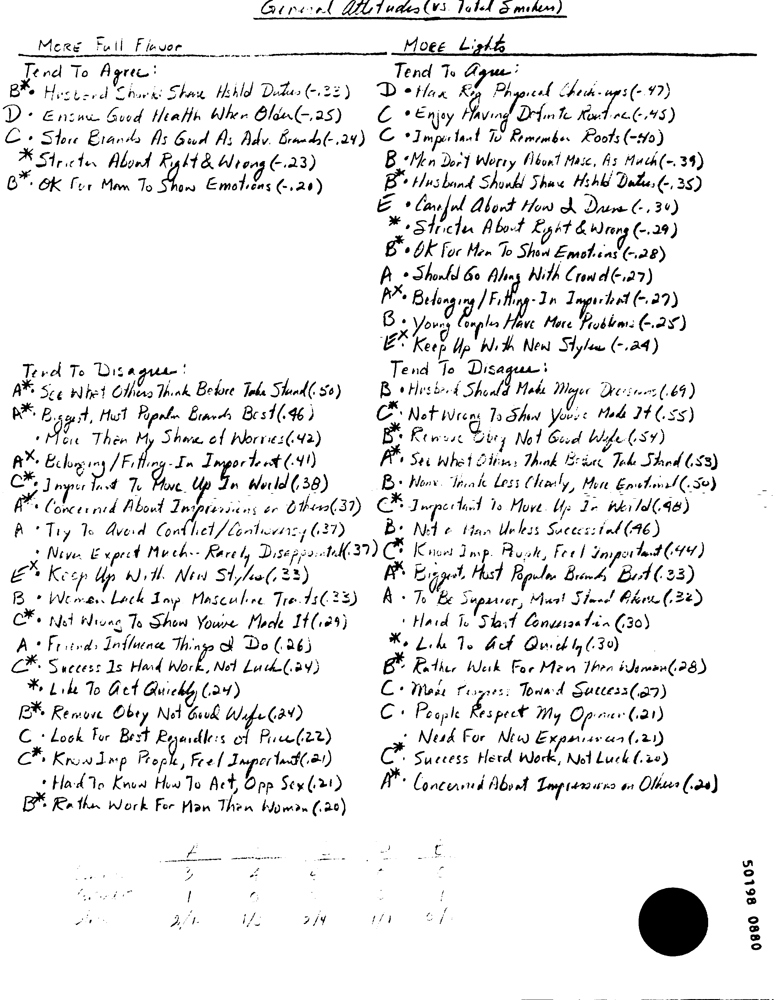 General Attitudes (vs. Total Smokers)
MORE Full Flavor
Tend To Agree:
B*• Husband Should Share Hshld Duties (-.33)
D • Ensure Good Health When Older (-.25)
C • Store Brands As Good As Adv. Brands (-.24)
* Stricter About Right & Wrong (-.23)
B*• OK For Man To Show Emotions (-.20)
Tend To Disagree:
A*• See What Others Think Before Take Stand (.50)
A*• Biggest, Most Popular Brands Best (.46)
• More Than My Share of Worries (.42)
AX• Belonging/Fitting-In Important (.41)
C*• Important To Move Up In World (.38)
A*• Concerned About Impressions on Others (.37)
A • Try To Avoid Conflict/Controversy (.37)
• Never Expect Much - Rarely Disappointed (.37)
EX• Keep Up With New Styles (.33)
B • Women Lack Imp Masculine Traits (.33)
C*• Not Wrong To Show You've Made It (.29)
A • Friends Influence Things I Do (.26)
C*• Success Is Hard Work, Not Luck (.24)
*• Like To Act Quickly (.24)
B*• Remove Obey Not Good Wife (.24)
C • Look For Best Regardless of Price (.22)
C*• Know Imp People, Feel Important (.21)
• Hard To Know How To Act, Opp Sex (.21)
B*• Rather Work For Man Than Woman (.20)
MORE Lights
Tend To Agree:
D • Have Reg Physical Check-ups (-.47)
C • Enjoy Having Definite Routine (-.45)
C • Important To Remember Roots (-.40)
B • Men Don't Worry About Masc. As Much (-.39)
B*• Husband Should Share Hshld Duties (-.35)
E • Careful About How I Dress (-.30)
*• Stricter About Right & Wrong (-.29)
B*• OK For Man To Show Emotions (-.28)
A • Should Go Along With Crowd (-.27)
AX• Belonging/Fitting-In Important (-.27)
B • Young Couples Have More Problems (-.25)
EX• Keep Up With New Styles (-.24)
Tend To Disagree:
B • Husband Should Make Major Decisions (.69)
C*• Not Wrong To Show You've Made It (.55)
B*• Remove Obey Not Good Wife (.54)
A*• See What Others Think Before Take Stand (.53)
B • Think Less Clearly, More Emotional (.50)
C*• Important To Move Up In World (.48)
B • Not a Man Unless Successful (.46)
C*• Know Imp. People, Feel Important (.44)
A*• Biggest, Most Popular Brands Best (.33)
A • To Be Superior, Must Stand Alone (.32)
• Hard To Start Conversation (.30)
*• Like To Act Quickly (.30)
B*• Rather Work For Man Than Woman (.28)
C • Made Progress Toward Success (.27)
C • People Respect My Opinion (.21)
• Need For New Experiences (.21)
C*• Success Hard Work, Not Luck (.20)
A*• Concerned About Impressions on Others (.20)
50198 0880